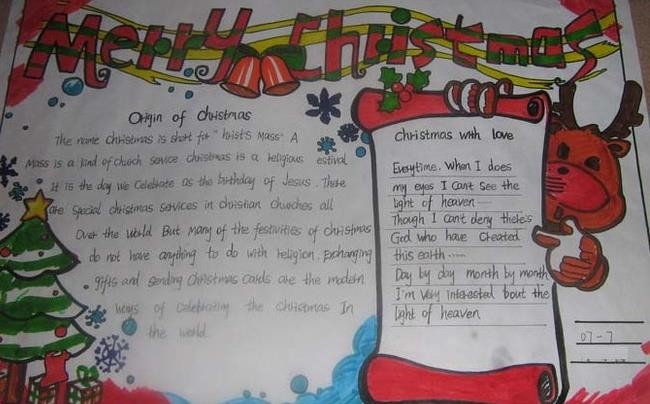 Merry Christmas
Origin of christmas
The name christmas is short for "hrist's Mass" A
Mass is a kind of church service christmas is a religious estival
It is the day we celebrate as the birthday of Jesus. There
are special christmas services in christian churches all
Over the world But many of the festivities of christmas
do not have anything to do with religion. Exchanging
gifts and sending Christmas cards are the modern
ways of celebrating the Christmas In
the world.
christmas with love
Everytime. When I does
my eyes I cant see the
light of heaven
Though I can't deny there's
God who have created
this earth .....
Day by day month by month
I'm very interested bout the
light of heaven
07-7